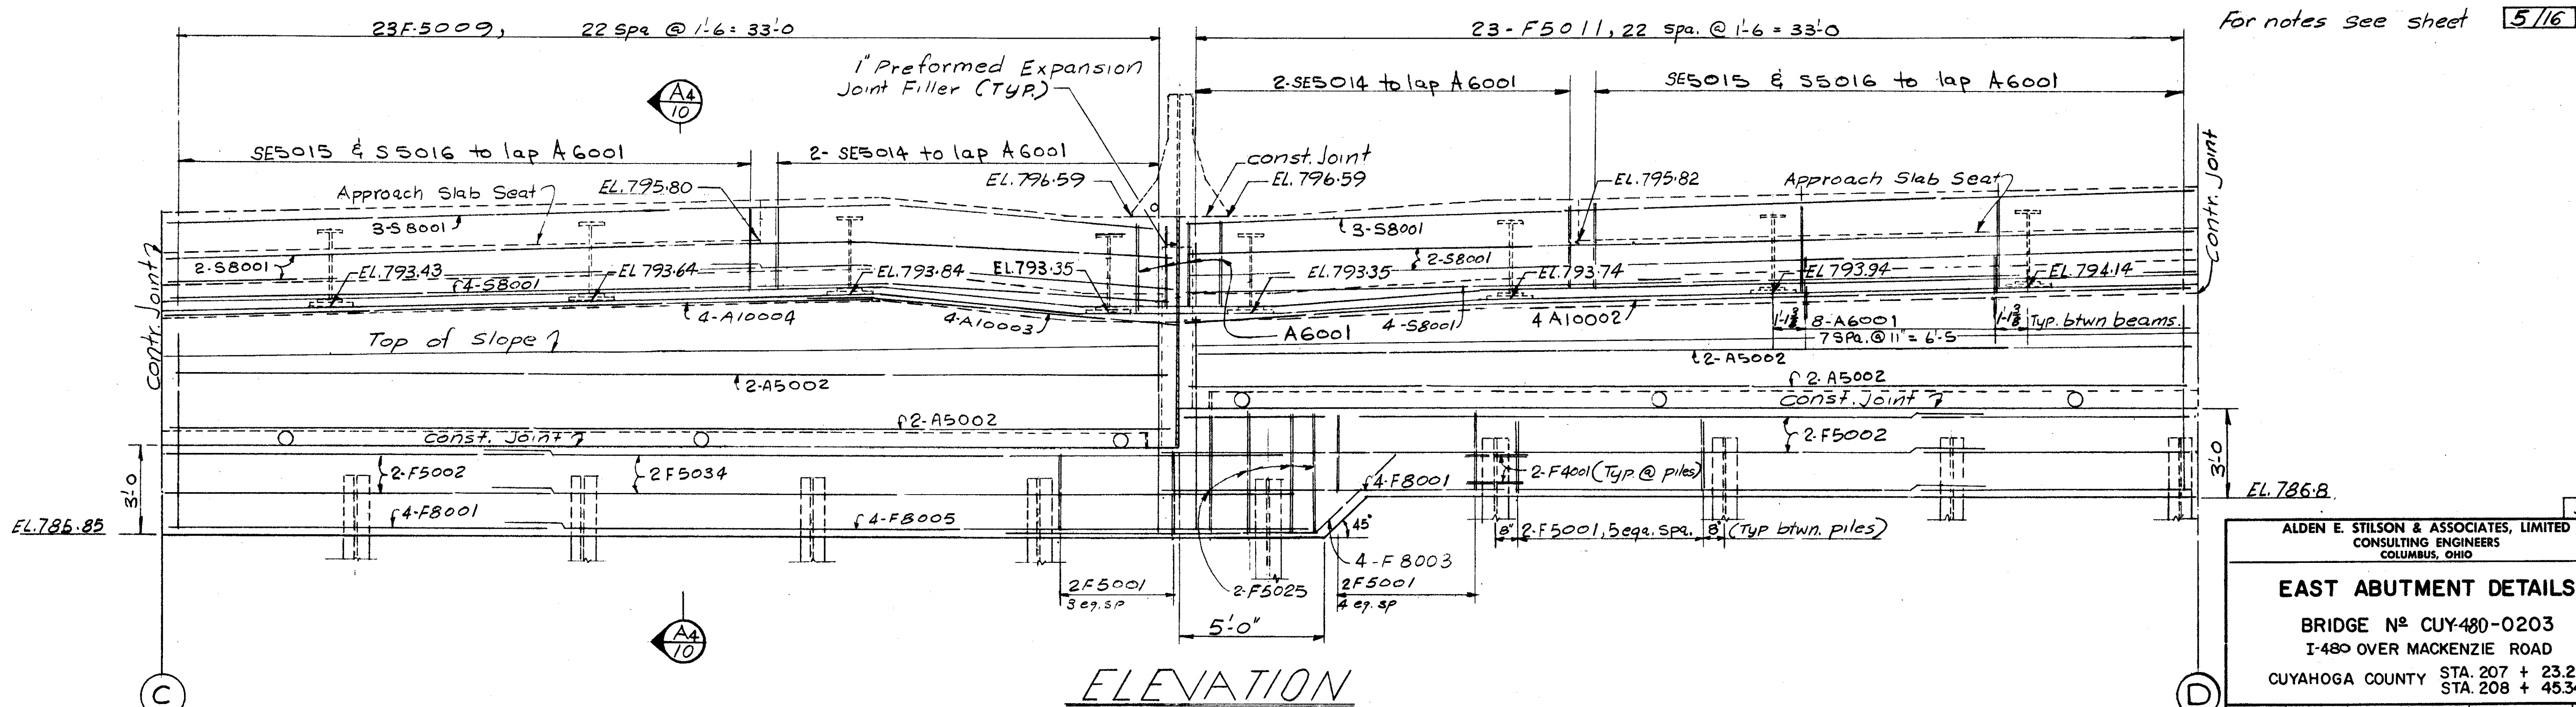 23F-5009, 22 spa @ 1'-6 = 33'-0
23-F5011, 22 spa. @ 1'-6 = 33'-0
For notes see sheet 5/16
1" Preformed Expansion
Joint Filler (TYP.)
A4
10
2-SE5014 to lap A6001
SE5015 & S5016 to lap A6001
SE5015 & S5016 to lap A6001
2-SE5014 to lap A6001
const. Joint
EL. 796.59
EL. 796.59
Approach Slab Seat
EL. 795.80
EL. 795.82
Approach Slab Seat
contr. Joint
3-S8001
3-S8001
2-S8001
2-S8001
EL. 793.43
EL 793.64
EL. 793.84
EL. 793.35
EL. 793.35
EL. 793.74
EL 793.94
EL. 794.14
4-S8001
contr. Joint
4-A10004
4-A10003
A6001
4-S8001
4 A10002
8-A6001
7 SPA. @ 11" = 6'-5
Typ. btwn beams.
Top of Slope
2-A5002
2-A5002
2-A5002
2-A5002
const. Joint
const. Joint
2-F5002
2-F5002
2F5034
3'-0
3'-0
2-F4001 (Typ. @ piles)
4-F8001
4-F8001
4-F8005
EL. 786.85
EL. 786.8
45°
8" 2-F5001, 5 eqa. spa. 8" (Typ btwn. piles)
4-F8003
2F5001
3 eq. sp
2-F5025
2F5001
4 eq. sp
5'-0"
A4
10
ELEVATION
C
D
ALDEN E. STILSON & ASSOCIATES, LIMITED
CONSULTING ENGINEERS
COLUMBUS, OHIO
EAST ABUTMENT DETAILS
BRIDGE Nº CUY-480-0203
I-480 OVER MACKENZIE ROAD
CUYAHOGA COUNTY STA. 207 + 23.2
STA. 208 + 45.34